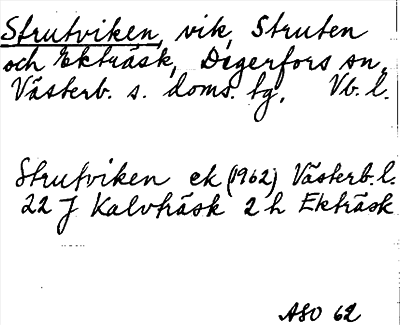 Strutviken, vik, Struten
och Ekträsk, Degerfors sn,
Västerb. s. doms. tg. Vb. l.
Strutviken ek (1962) Västerb. l.
22 J Kalvträsk 2 h Ekträsk
ASO 62